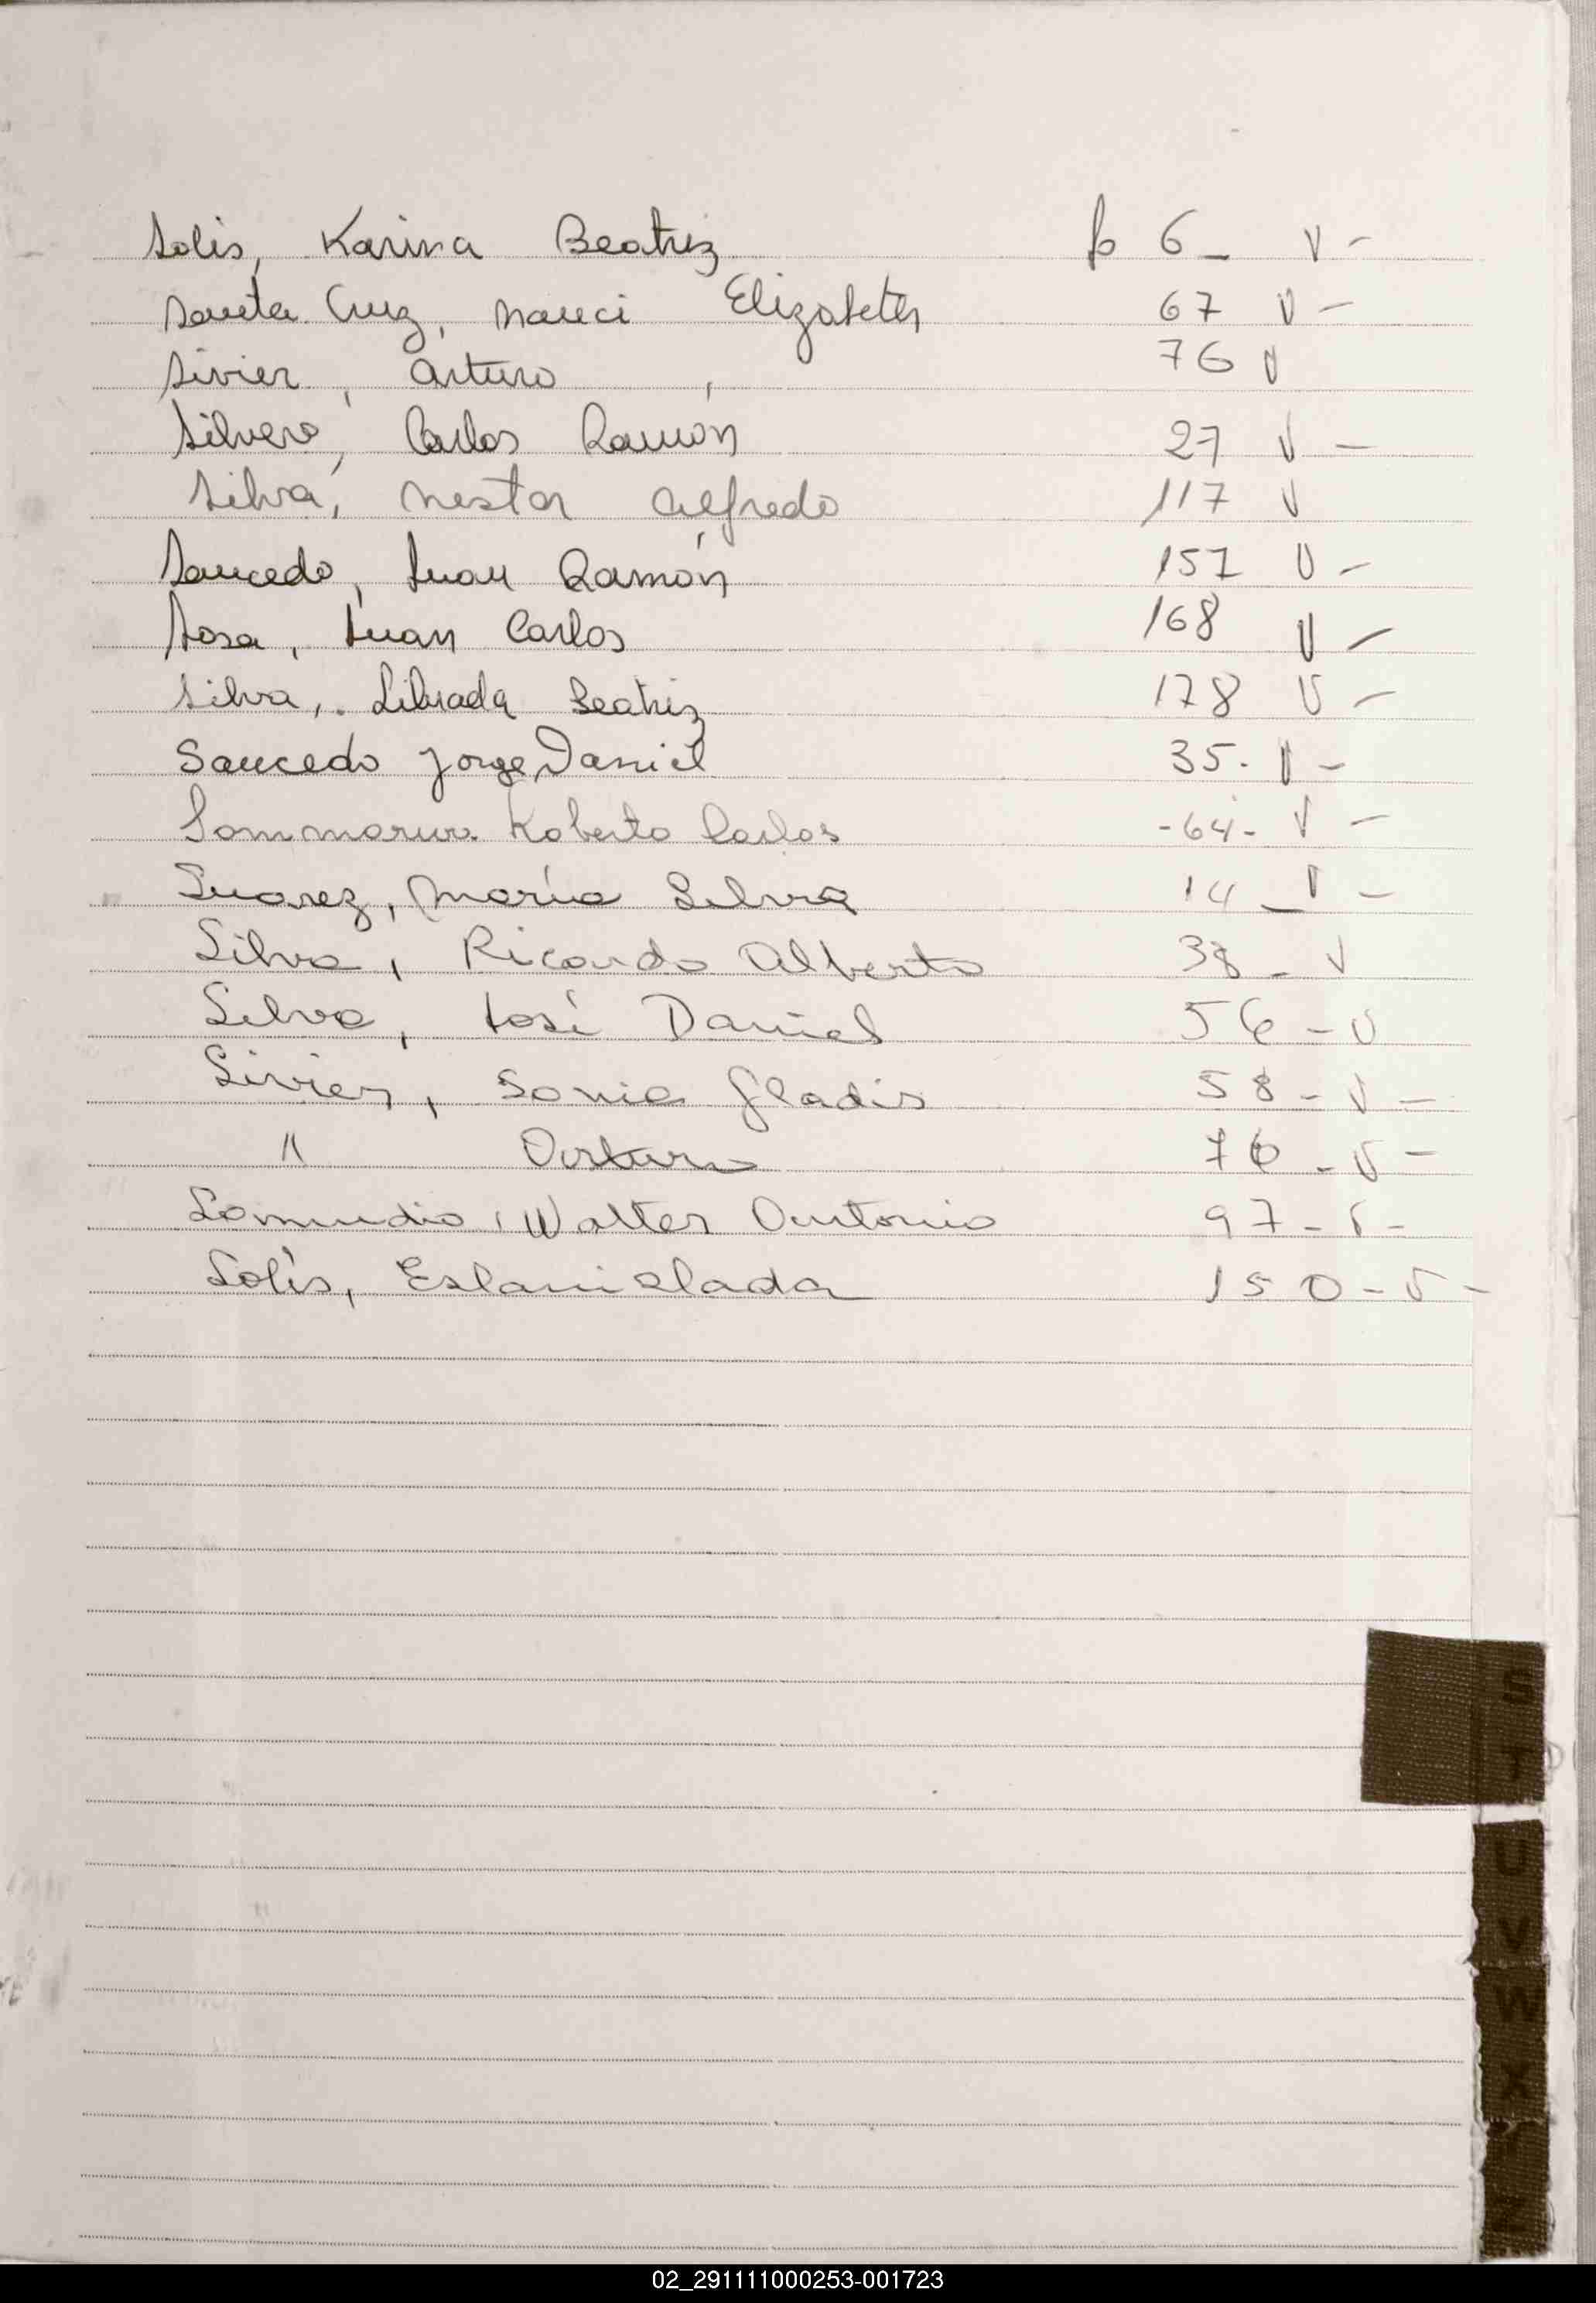 Solis, Karina Beatriz fo 6 - V -
Santa Cruz, Nanci Elizabeth 67 V -
Sivier, Arturo 76 V
Silvero, Carlos Ramón 27 V -
Silva, Nestor Alfredo 117 V
Saucedo, Juan Ramón 157 V -
Sosa, Juan Carlos 168 V -
Silva, Librada Beatriz 178 V -
Saucedo Jorge Daniel 35. V -
Roberto Carlos -64- V -
Suarez, María Silvia 14 - V -
Silva, Ricardo Alberto 38 - V
Silva, José Daniel 56 - V
Sivier, Sonia Gladis 58 - V -
" Arturo 76 - V -
Samudio, Walter Antonio 97 - V -
Solís, 150 - V -
S
T
U
V
W
X
Y
Z
02_291111000253-001723